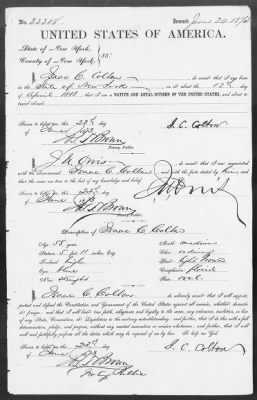 No. 33308
Issued, June 24 187
UNITED STATES OF AMERICA.
State of New York,
County of New York, } ss:
I, Isaac C. Colton, do swear that I was born
in the State of New York on or about the 12th
day of April 1818, that I am a NATIVE AND LOYAL CITIZEN OF THE UNITED STATES, and about
to travel abroad.
Sworn to before me, this 23d
day of June
I. C. Colton
Notary Public
I, do swear that I am acquainted
with the above-named Isaac C. Colton and with the facts stated by him, and
that the same are true to the best of my knowledge and belief.
Sworn to before me, this 23d
day of June
Notary Public
Description of Isaac C. Colton
Age, 55 years
Stature, 5 feet 11 inches, Eng.
Forehead, high
Eyes, blue
Nose, straight
Mouth, medium
Chin, ordinary
Hair, light brown
Complexion, florid
Face, oval
I, Isaac C. Colton do solemnly swear that I will support, protect
and defend the Constitution and Government of the United States against all enemies, whether domestic
or foreign; and that I will bear true faith, allegiance and loyalty to the same, any ordinance, resolution or law
of any State, Convention, or Legislature to the contrary notwithstanding; and further, that I do this with a full
determination, pledge, and purpose, without any mental reservation or evasion whatsoever; and further, that I will
well and faithfully perform all the duties which may be required of me by law. So help me God.
Sworn to before me, this 23d
day of June
I. C. Colton
Notary Public